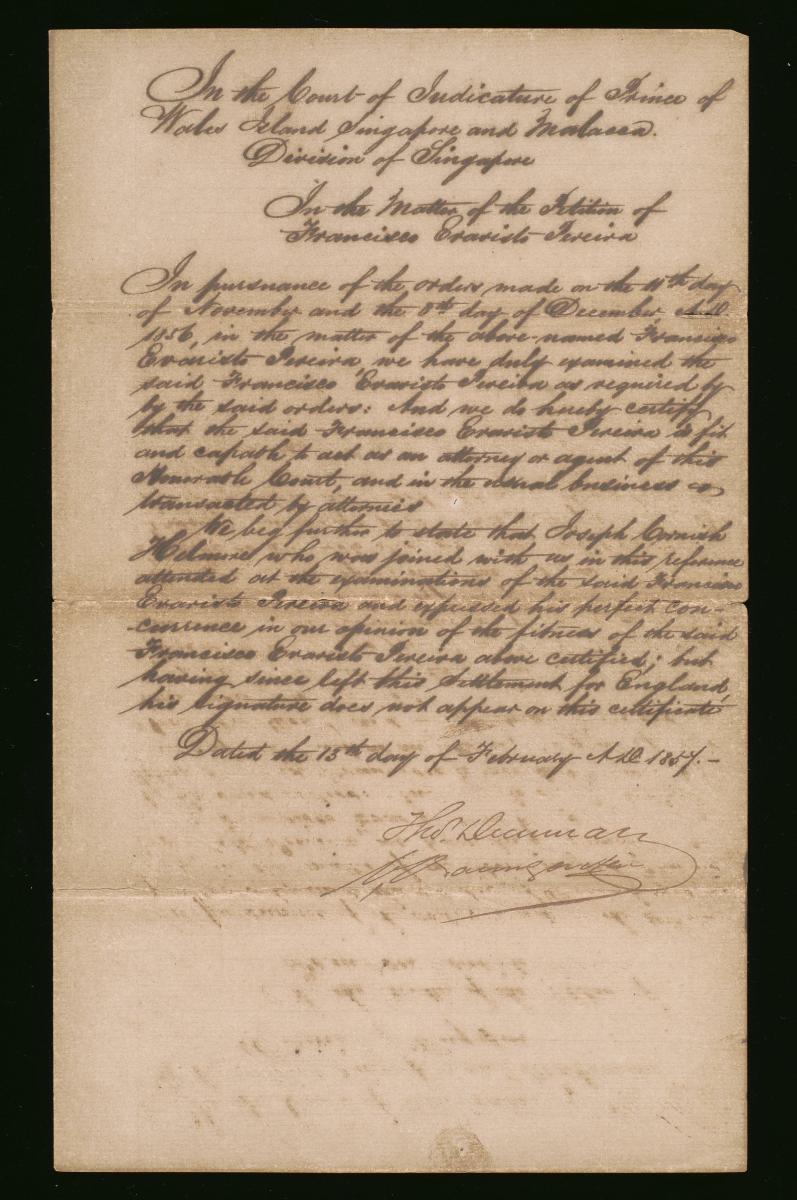 In the Court of Judicature of Prince of
Wales Island Singapore and Malacca.
Division of Singapore
In the Matter of the Petition of
Francisco Evaristo Pereira
In pursuance of the orders made on the 11th day
of November and the 8th day of December A.D.
1856, in the matter of the above named Francisco
Evaristo Pereira, we have duly examined the
said Francisco Evaristo Pereira as required by
by the said orders: And we do hereby certify
that the said Francisco Evaristo Pereira is fit
and capable to act as an attorney or agent of this
Honorable Court, and in the usual business
transacted by attornies
We beg further to state that Joseph Cornish
Helmore who was joined with us in this reference
attended at the examinations of the said Francisco
Evaristo Pereira and expressed his perfect con-
-currence in our opinion of the fitness of the said
Francisco Evaristo Pereira above certified; but
having since left this Settlement for England,
his signature does not appear on this certificate
Dated the 13th day of February A.D. 1857.-
Thos. Dunman
Baumgarten